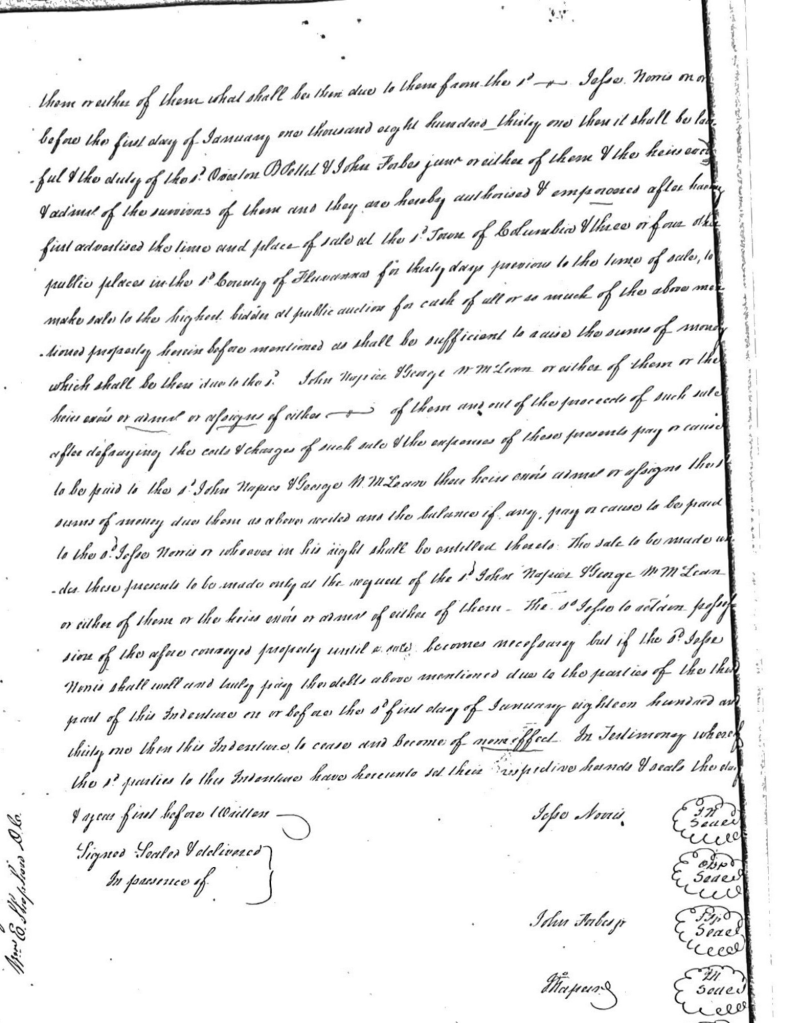 them or either of them what shall be then due to them from the sd Jesse Norris on or
before the first day of January one thousand eight hundred thirty one then it shall be law
ful & the duty of the sd Overton B Pettet & John Forbes junr or either of them & the heirs exors
& admrs of the survivors of them and they are hereby authorised & empowered after having
first advertised the time and place of sale at the sd Town of Columbia & three or four other
public places in the sd County of Fluvanna for thirty days previous to the time of sale, to
make sale to the highest bidder at public auction for cash of all or so much of the above men
tioned property herein before mentioned as shall be sufficient to raise the sums of money
which shall be then due to the sd John Napier & George W McLean or either of them or the
heirs exors or admrs or assigns of either of them and out of the proceeds of such sale
after defraying the costs & charges of such sale & the expenses of these presents pay or cause
to be paid to the sd John Napier & George W McLean their heirs exors admrs or assigns the
sums of money due them as above recited and the balance if any, pay or cause to be paid
to the sd Jesse Norris or whoever in his right shall be entitled thereto. The sale to be made un
-der these presents to be made only at the request of the sd John Napier & George W McLean
or either of them or the heirs exors or admrs of either of them - The sd Jesse to retain posses
sion of the afore conveyed property until a sale becomes necessary but if the sd Jesse
Norris shall well and truly pay the debts above mentioned due to the parties of the third
part of this Indenture on or before the sd first day of January eighteen hundred and
thirty one then this Indenture to cease and become of none effect. In Testimony whereof
the sd parties to this Indenture have hereunto set their respective hands & seals the day
& year first before Written
Signed Sealed & delivered
In presence of
Jesse Norris
Seal
Seal
John Forbes jr
Seal
Seal
Wm E. Stephen D.C.